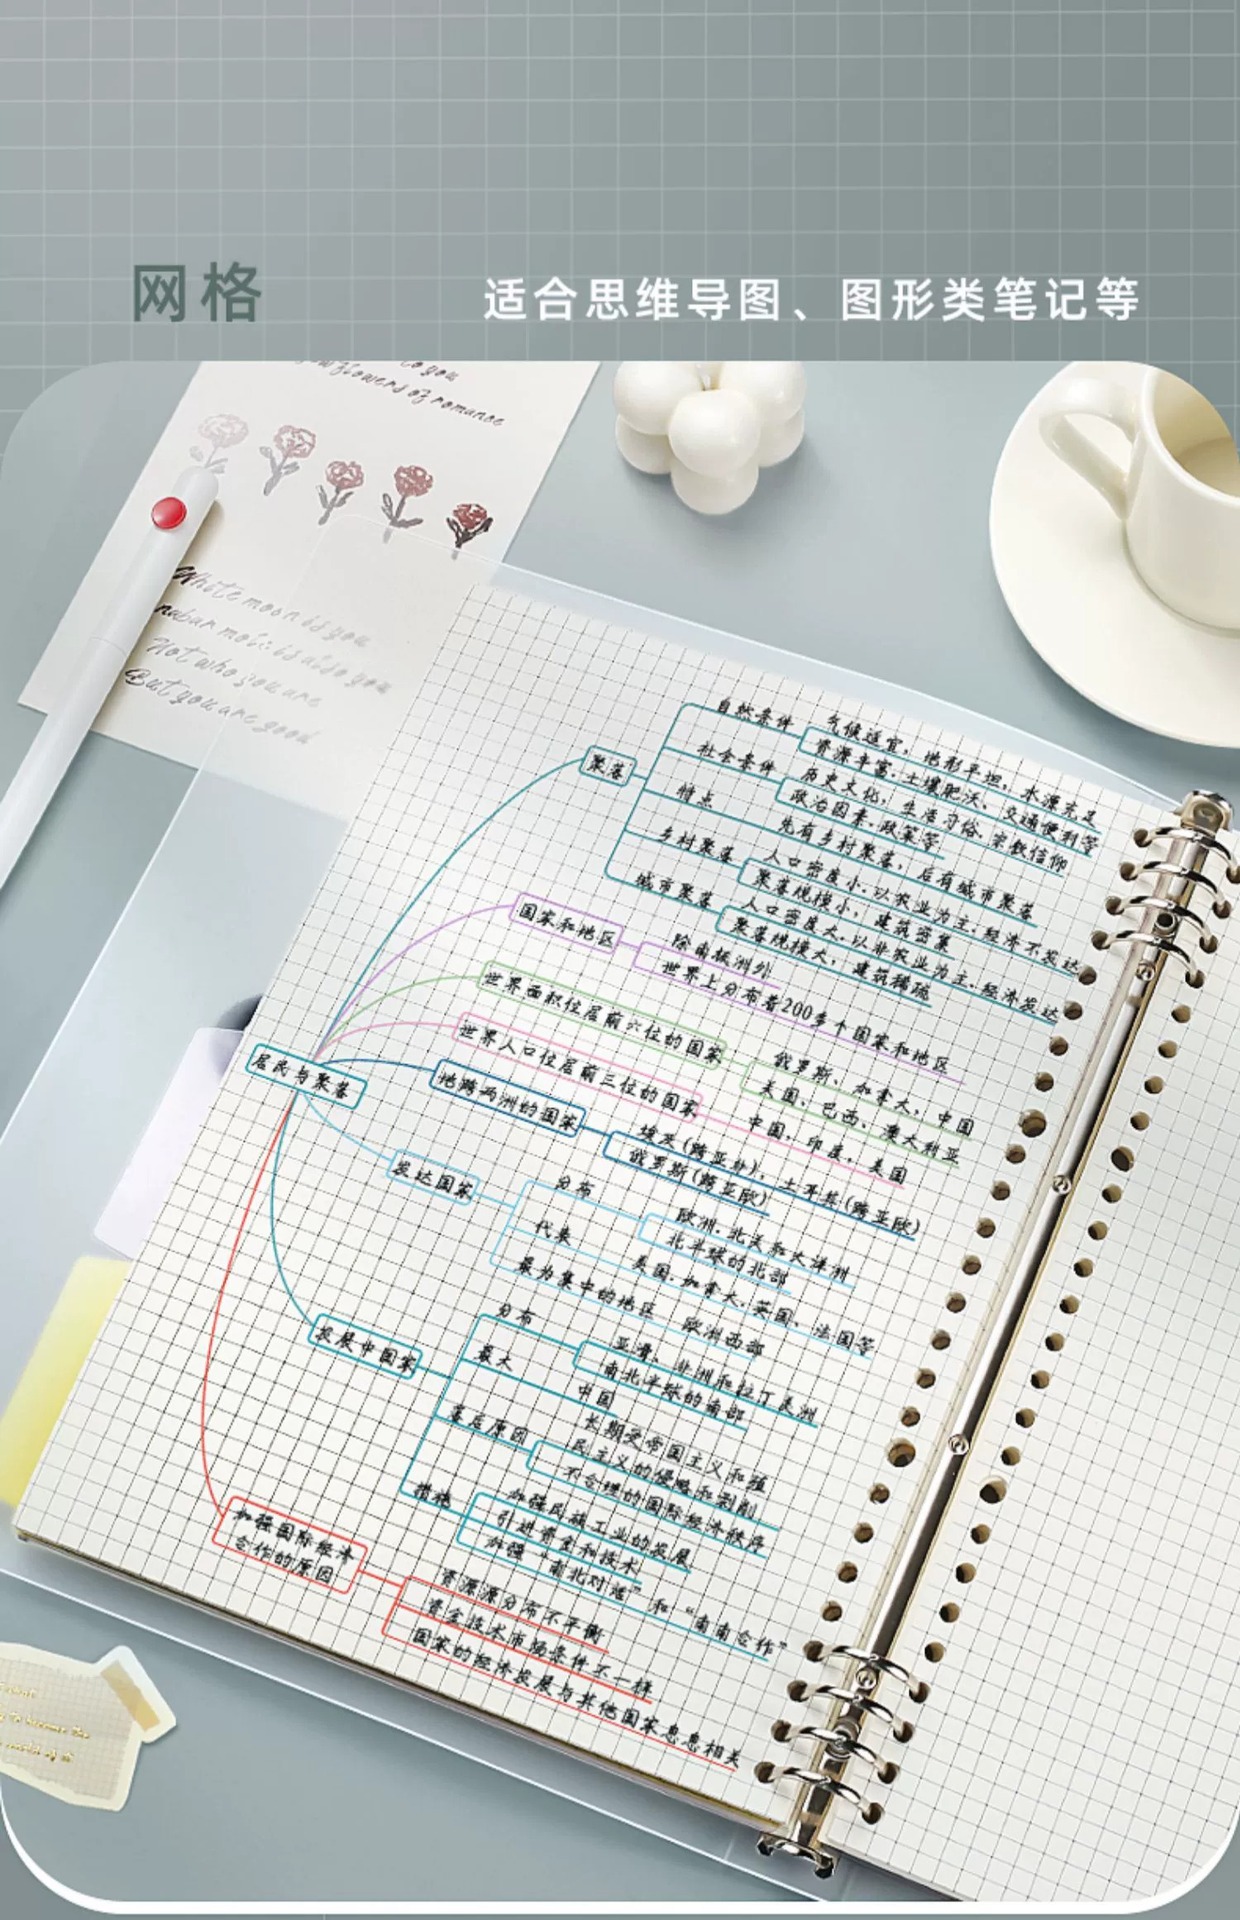 网格
适合思维导图、图形类笔记等
to you
flowers of romance
White moon is you
is also you
Not who you are
But you are good
居民与聚落
聚落
自然条件
气候适宜，地形平坦，水源充足
资源丰富.土壤肥沃、交通便利等
社会条件
历史文化，生活习俗.宗教信仰
政治因素.政策等
特点
先有乡村聚落，后有城市聚落
乡村聚落
人口密度小.以农业为主.经济不发达
聚落规模小，建筑密集
城市聚落
人口密度大.以非农业为主.经济发达
聚落规模大，建筑稀疏
国家和地区
除南极洲外
世界上分布着200多个国家和地区
世界面积位居前六位的国家
俄罗斯、加拿大，中国
美国、巴西、澳大利亚
世界人口位居前三位的国家
中国，印度，美国
地跨两洲的国家
埃及(跨亚非)，土耳其(跨亚欧)
俄罗斯(跨亚欧)
发达国家
分布
欧洲.北美和大洋洲
北半球的北部
代表
美国.加拿大.英国、法国等
最为集中的地区
欧洲西部
发展中国家
分布
亚洲、非洲和拉丁美洲
南北半球的南部
最大
中国
落后原因
长期受帝国主义和殖
民主义的侵略和剥削
不合理的国际经济秩序
措施
加强民族工业的发展
引进资金和技术
加强“南北对话”和“南南合作”
加强国际经济
合作的原因
资源源分布不平衡
资金技术市场条件不一样
国家的经济发展与其他国家息息相关